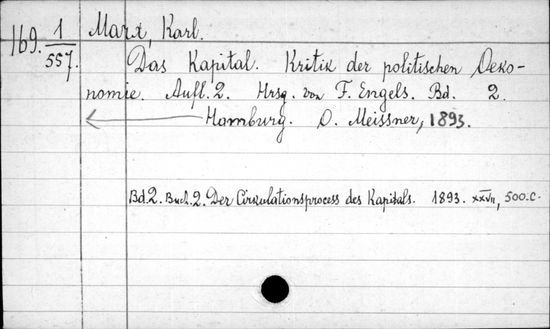 Marx, Karl.
169. 1/557.
Das Kapital. Kritik der politischen Oeko-
nomie. Aufl. 2. Hrsg. von F. Engels. Bd. 2.
Hamburg. O. Meissner, 1893.
Bd. 2. Buch. 2. Der Cirkulationsprocess des Kapitals. 1893. XXVII, 500.c.